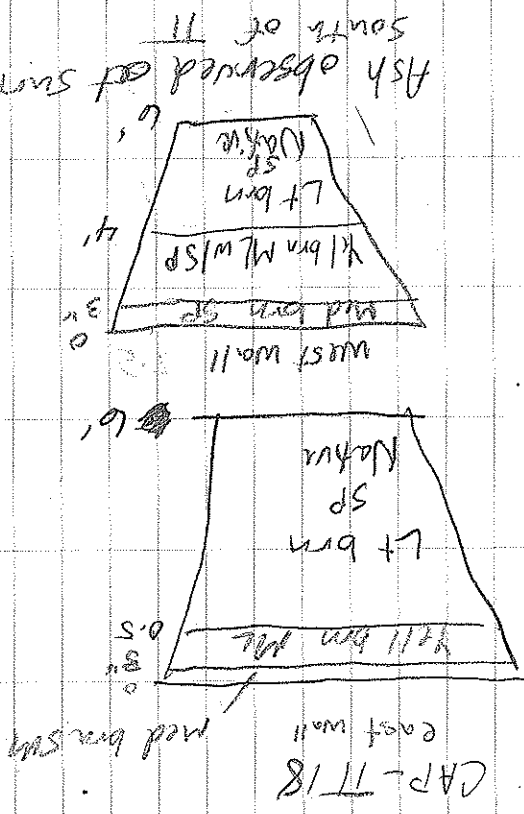 CAP-TT18
east wall
med brn SM
0
3"
Yell brn ML 0.5
Lt brn
SP
Native
6'
West wall
0
med brn SP 3"
Yel brn ML w/SP 4'
Lt brn
SP
Native
6'
Ash observed at surf
south of TT